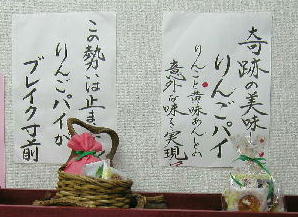 奇跡の美味
りんごパイ
りんごと黄味あんとの
意外な味を実現
この勢いは止ま
りんごパイが
ブレイク寸前